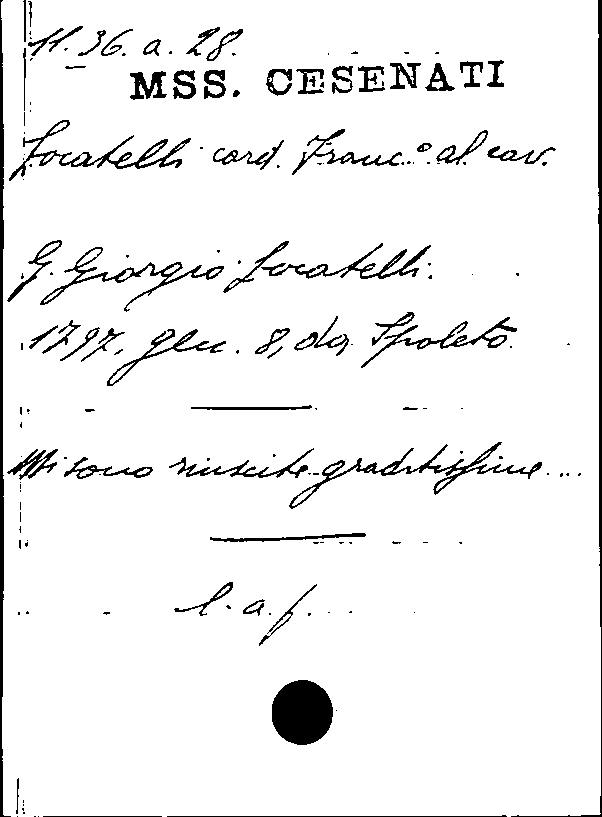 11. 36. a. 28.
MSS. CESENATI
Locatelli card. Franc.º al cav.
G. Giorgio Locatelli.
1797, gen. 8, da Spoleto
Mi sono riuscite graditissime ...
l. a. f.